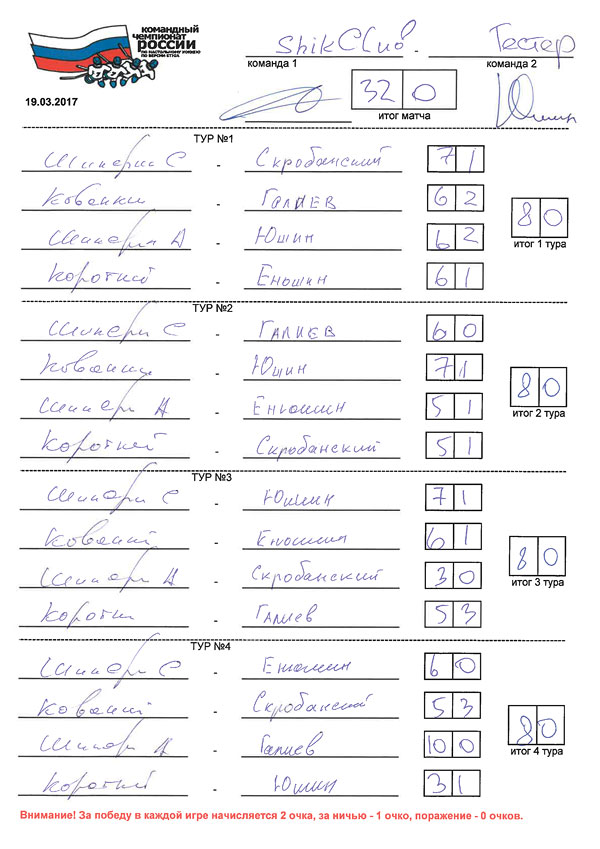 командный
чемпионат
россии
по настольному хоккею
по версии ETHA
ShikClub. Тестер
команда 1 команда 2
19.03.2017
32 0
итог матча
ТУР №1
С - Скробанский 7 1
- Галиев 6 2
А - Юшин 6 2
Короткий - Енюшин 6 1
8 0
итог 1 тура
ТУР №2
С - Галиев 6 0
- Юшин 7 1
А - Енюшин 5 1
Короткий - Скробанский 5 1
8 0
итог 2 тура
ТУР №3
С - Юшин 7 1
- Енюшин 6 1
А - Скробанский 3 0
- Галиев 5 3
8 0
итог 3 тура
ТУР №4
С - Енюшин 6 0
- Скробанский 5 3
А - Галиев 10 0
Короткий - Юшин 3 1
8 0
итог 4 тура
Внимание! За победу в каждой игре начисляется 2 очка, за ничью - 1 очко, поражение - 0 очков.